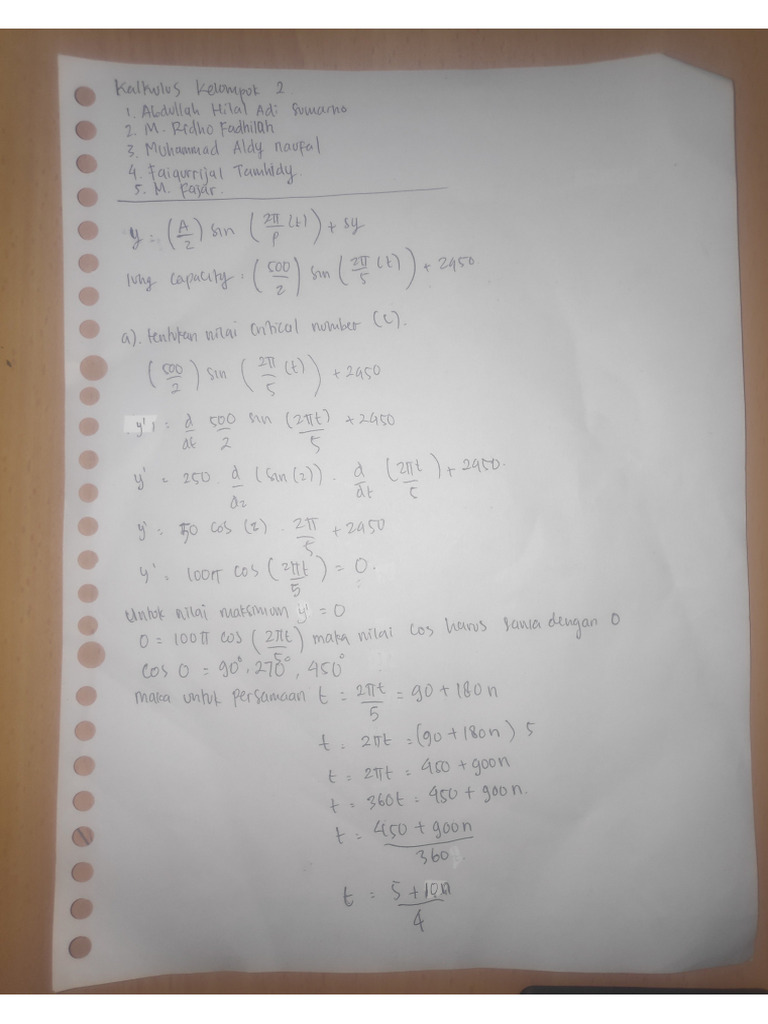 Kalkulus Kelompok 2
1. Abdullah Hilal Adi Sumarno
2. M. Ridho Fadhilah
3. Muhammad Aldy naufal
4. Faiqurrijal Tamhidy.
5. M. Fajar.
y = (A/2) sin (2π/P (t)) + sy
lung capacity = (500/2) sin (2π/5 (t)) + 2950
a). tentukan nilai critical number (c).
(500/2) sin (2π/5 (t)) + 2950
y' = d/dt 500/2 sin (2πt)/5 + 2950
y' = 250 . d/dz (sin(z)) . d/dt (2πt/5) + 2950.
y' = 50 cos (z) . 2π/5 + 2950
y' = 100π cos (2πt/5) = 0.
Untuk nilai maksimum y' = 0
0 = 100π cos (2πt/5) maka nilai cos harus sama dengan 0
cos 0 = 90°, 270°, 450°
maka untuk persamaan t = 2πt/5 = 90 + 180n
t = 2πt = (90 + 180n) 5
t = 2πt = 450 + 900n
t = 360t = 450 + 900n.
t = 450 + 900n/360
t = 5 + 10n/4